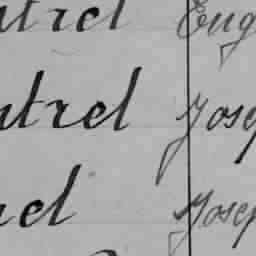 ntrel Eug
ntrel Josep
rel Josep